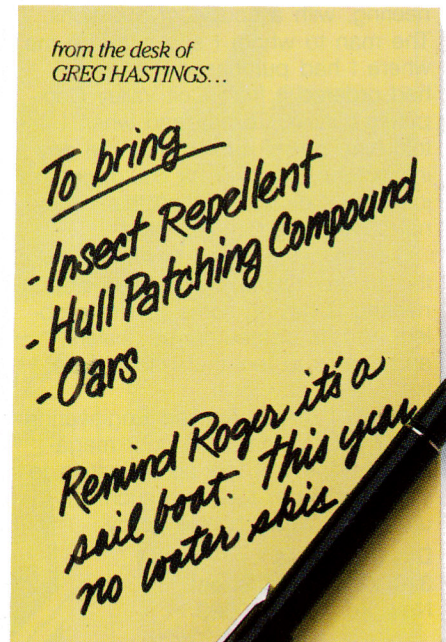 from the desk of
GREG HASTINGS...
To bring
-Insect Repellent
-Hull Patching Compound
-Oars
Remind Roger it's a
sail boat. This year
no water skis.